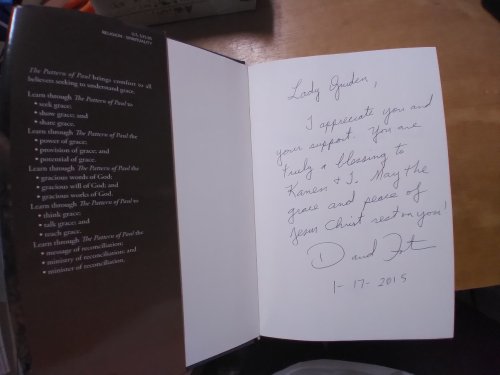 RELIGION / SPIRITUALITY
The Pattern of Paul brings comfort to all
believers seeking to understand grace.
Learn through The Pattern of Paul to
• seek grace;
• show grace; and
• share grace.
Learn through The Pattern of Paul the
• power of grace;
• provision of grace; and
• potential of grace.
Learn through The Pattern of Paul the
• gracious words of God;
• gracious will of God; and
• gracious works of God.
Learn through The Pattern of Paul to
• think grace;
• talk grace; and
• teach grace.
Learn through The Pattern of Paul the
• message of reconciliation;
• ministry of reconciliation; and
• minister of reconciliation.
Lady
I appreciate you and
your support. You are
truly a blessing to
Karen & I. May the
grace and peace of
Jesus Christ rest on you!
David
1-17-2015